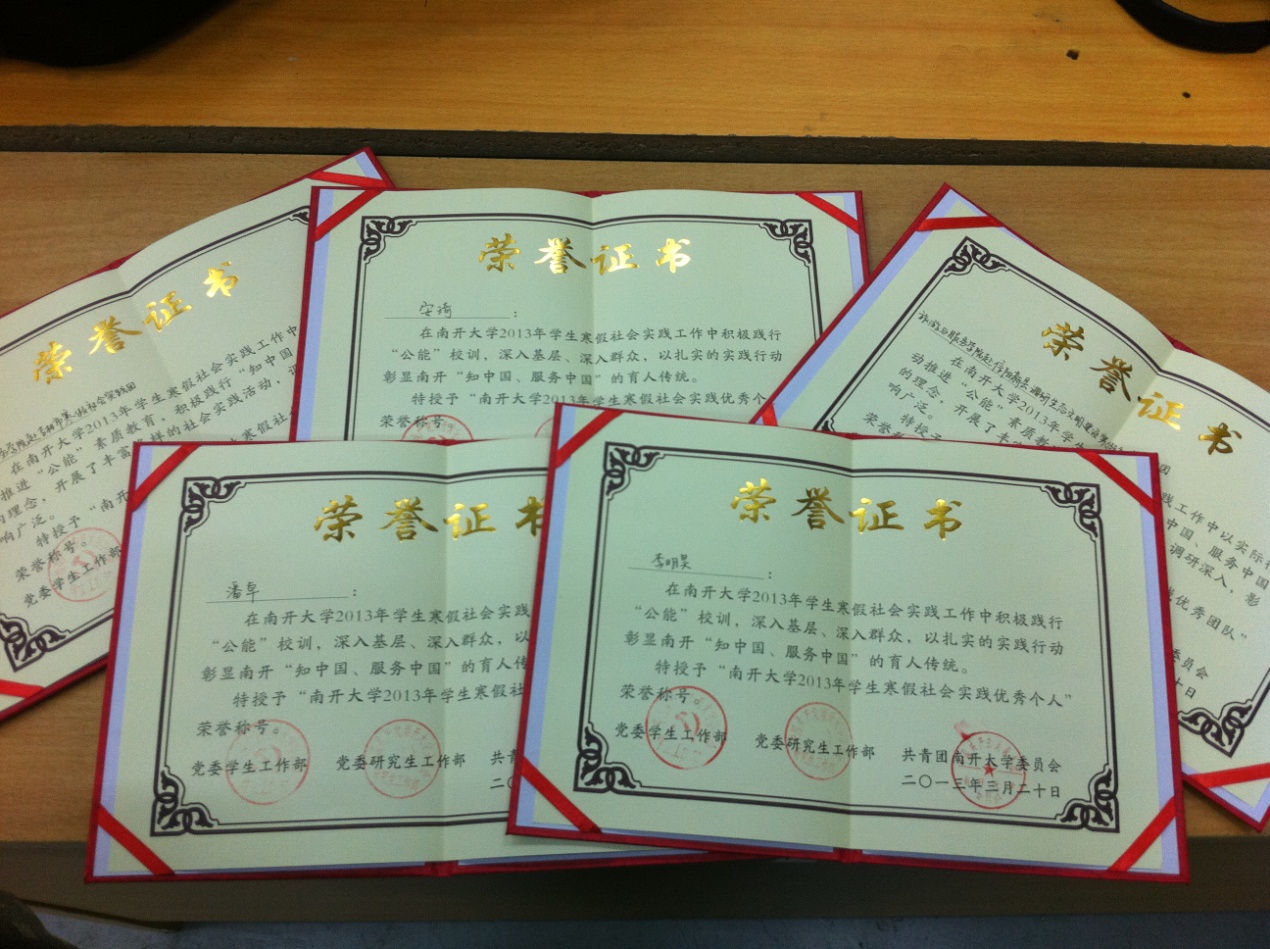 荣誉证书
在南开大学2013年学生寒假社会实践工作中
推进“公能”素质教育，积极践行“知中国
的理念，开展了丰富
样的社会实践活动，调
响广泛。
特授予“南开
荣誉称号。
党委学生工作部
荣誉证书
安琦：
在南开大学2013年学生寒假社会实践工作中积极践行
“公能”校训，深入基层、深入群众，以扎实的实践行动
彰显南开“知中国、服务中国”的育人传统。
特授予“南开大学2013年学生寒假社会实践优秀个人”
荣誉称号。
荣誉证书
在南开大学2013年学
实践工作中以实际行
动推进“公能”素质教
中国、服务中国
的理念，开展了丰富
调研深入，影
响广泛。
特授予
践优秀团队”
荣誉称号
委员会
十日
荣誉证书
潘卓：
在南开大学2013年学生寒假社会实践
“公能”校训，深入基层、深入群众，以
彰显南开“知中国、服务中国”的育人传
特授予“南开大学2013年学生寒假社
荣誉称号。
党委学生工作部 党委研究生工作部 共青
二〇
荣誉证书
李明昊：
在南开大学2013年学生寒假社会实践工作中积极践行
“公能”校训，深入基层、深入群众，以扎实的实践行动
彰显南开“知中国、服务中国”的育人传统。
特授予“南开大学2013年学生寒假社会实践优秀个人”
荣誉称号。
党委学生工作部 党委研究生工作部 共青团南开大学委员会
二〇一三年三月二十日